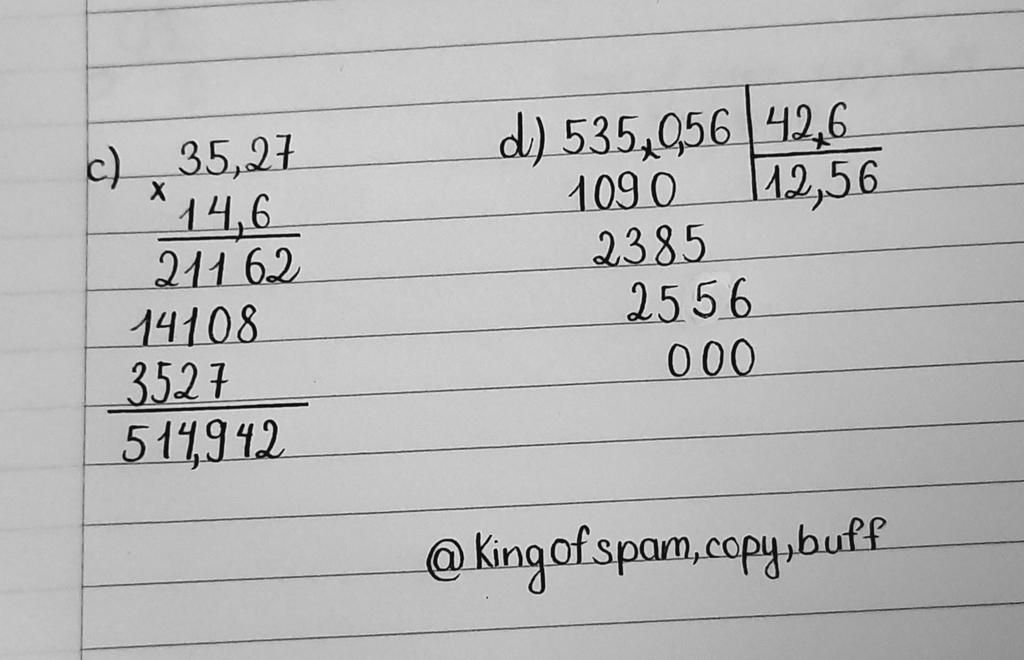 c) 35,27
x
14,6
21162
14108
3527
514,942
d) 535,0,56 42,6
12,56
1090
2385
2556
000
@Kingofspam,copy,buff